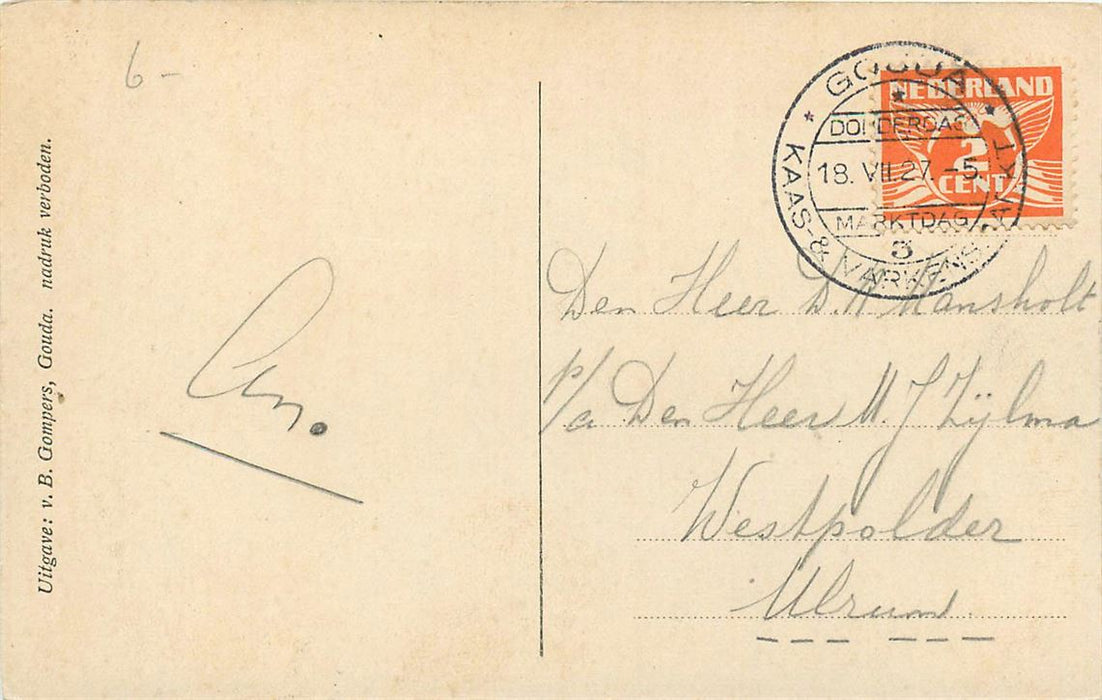 6-
Uitgave: v. B. Gompers, Gouda. nadruk verboden.
GOUDA
DONDERDAG
18. VII.27. -5.
MARKTDAG
3
KAAS- & VARKENSMARKT
NEDERLAND
2
CENT
Den Heer D. R Mansholt
p/a Den Heer M. J Zijlma
Westpolder
Ulrum